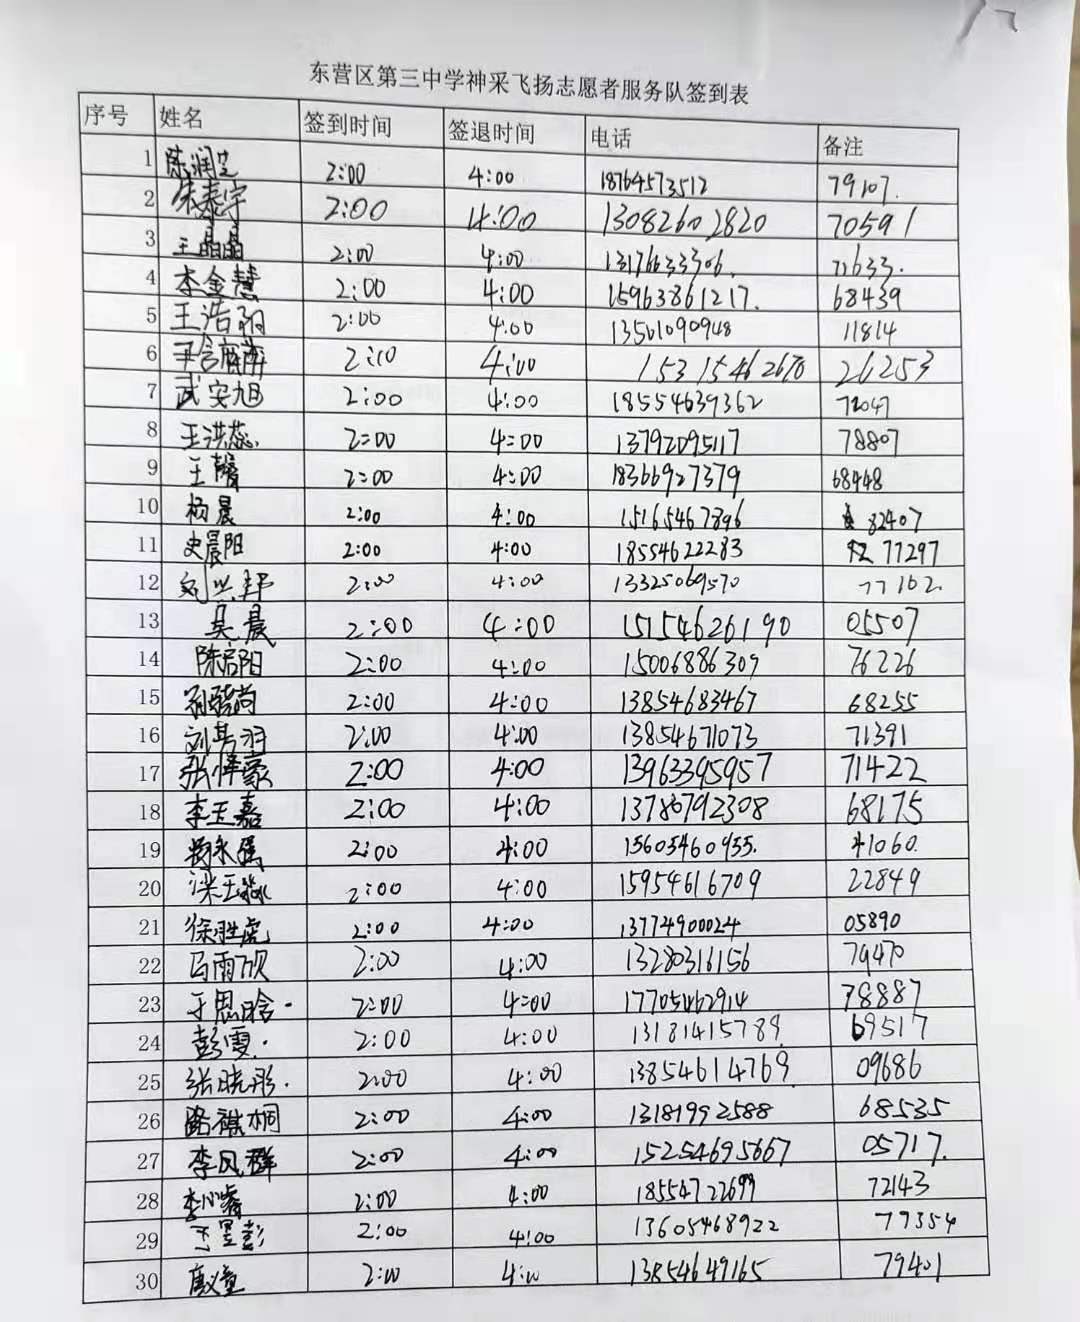 东营区第三中学神采飞扬志愿者服务队签到表
序号 姓名 签到时间 签退时间 电话 备注
1 陈润芝 2:00 4:00 18764573512 79107.
2 朱泰宇 2:00 4:00 13082602820 70591
3 王晶晶 2:00 4:00 13176633306. 72633.
4 李金慧 2:00 4:00 15963861217. 68439
5 王浩翔 2:00 4:00 13561090948 11814
6 2:10 4:00 15315462670 26253
7 武安旭 2:00 4:00 18554639362 72047
8 王洪蕊 2:00 4:00 13792095117 78807
9 王馨 2:00 4:00 18366927379 68448
10 杨晨 2:00 4:00 15165467896 82407
11 史晨阳 2:00 4:00 18554622283 77297
12 刘兴邦 2:00 4:00 13325069570 77162.
13 吴晨 2:00 4:00 15154626190 05507
14 陈启阳 2:00 4:00 15006886309 76226
15 2:00 4:00 13854683467 68255
16 2:00 4:00 13854671073 71391
17 张怿豪 2:00 4:00 13963395957 71422
18 李玉嘉 2:00 4:00 13780792308 68175
19 杨永强 2:00 4:00 15605460955. 41060.
20 梁玉淼 2:00 4:00 15954616709 22849
21 徐胜虎 2:00 4:00 13774900024 05890
22 马雨欣 2:00 4:00 13280316156 79470
23 于思晗. 2:00 4:00 17705462914 78887
24 彭雯. 2:00 4:00 13181415789 69517
25 张晓彤. 2:00 4:00 13854614769 09686
26 路祺桐 2:00 4:00 13181992588 68535
27 李风群 2:00 4:00 15254695667 05717.
28 李心睿 2:00 4:00 18554722699 72143
29 于昱彭 2:00 4:00 13605468922 79354
30 2:00 4:00 13854649165 79401